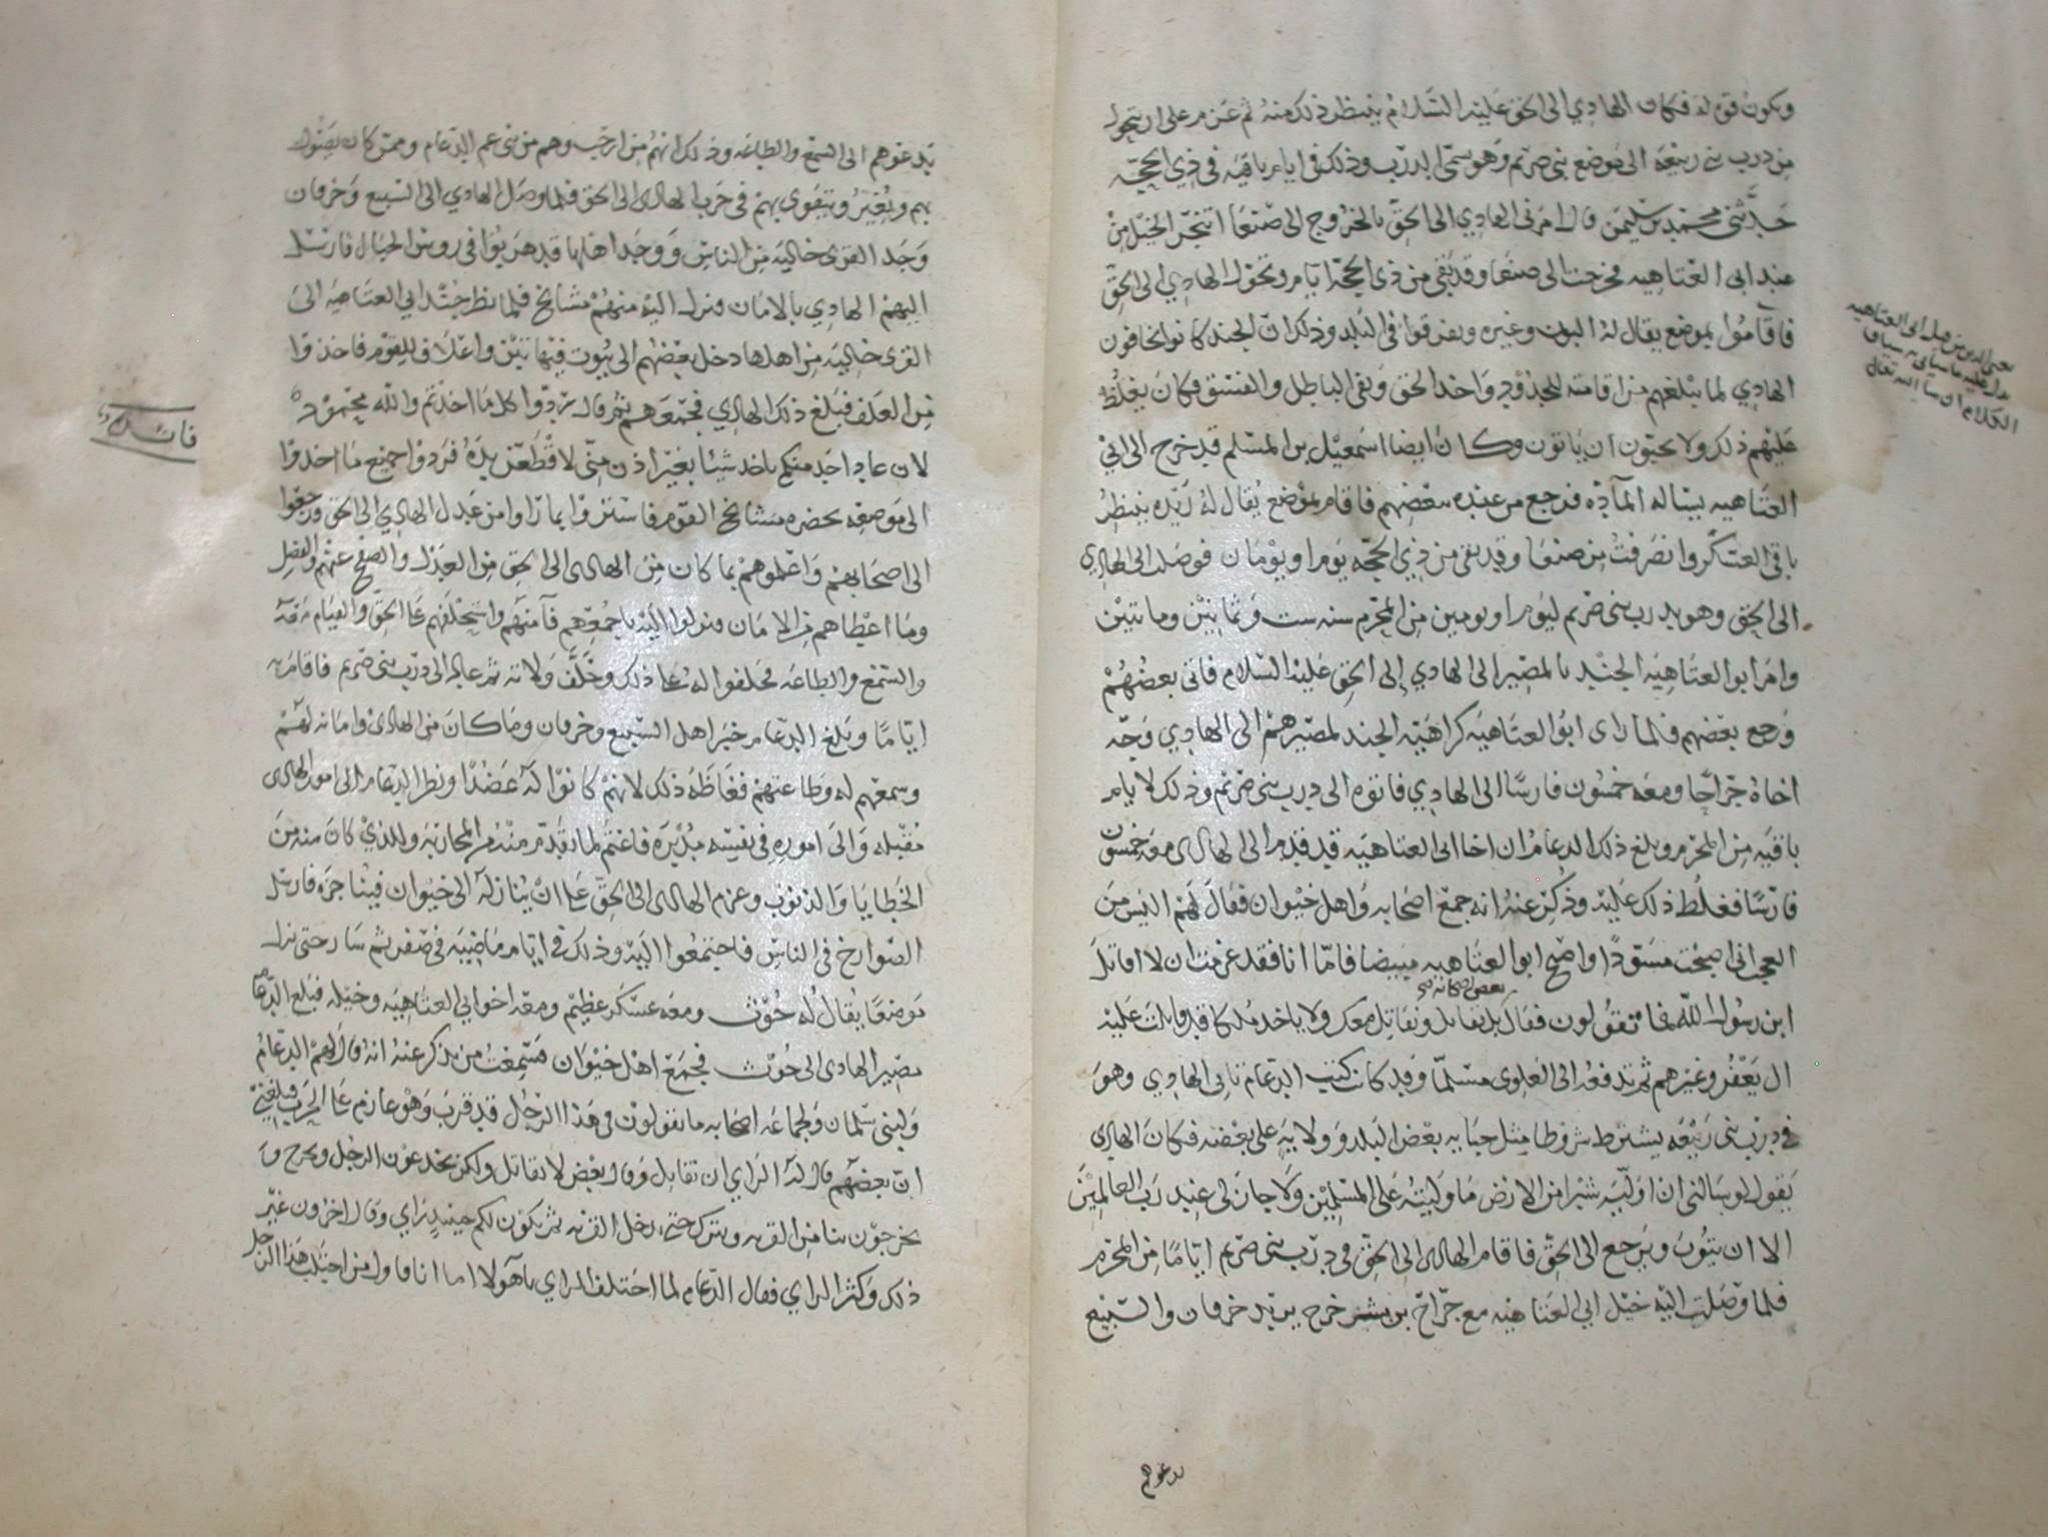 وتكون قوة له فكان الهادي الى الحق عليه السلام ينتظر ذلك منه ثم عزم على ان يتحول
من درب بني ربيعه الى موضع بني صريم وهو يسمى الدرب وذلك في ايام باقيه في ذي الحجه
حدثني محمد بن سليمن قال امرني الهادي الى الحق بالخروج الى صنعا اتنجز الخيل من
عند ابي العتاهيه فخرجت الى صنعا وقد بقي من ذي الحجة ايام وتحول الهادي الى الحق
فاقاموا بموضع يقال له البون وغيره وتفرقوا في البلد وذلك ان الجند كانوا يخافون
الهادي لما يبلغهم من اقامته للحدود واخذ الحق ونفي الباطل والفسق فكان يغلظ
عليهم ذلك ولا يحبون ان ياتون وكان ايضا اسمعيل بن المسلم قد خرج الى ابي
العتاهيه يساله المآده فرجع من عنده ببعضهم فاقام بموضع يقال له ريده ينتظر
باقي العسكر وانصرفت من صنعا وقد بقي من ذي الحجه يوم او يومان فوصلت الى الهادي
الى الحق وهو بدرب بني صريم ليوم او يومين من المحرم سنه ست وثمانين وماتين
وامر ابو العتاهيه الجند بالمصير الى الهادي إلى الحق عليه السلام فاتى بعضهم
ورجع بعضهم فلما راى ابو العتاهيه كراهية الجند لمصيرهم الى الهادي وجه
اخاه جراحا ومعه خمسون فارسا الى الهادي فاتوه الى درب بني صريم وذلك لايام
باقيه من المحرم وبلغ ذلك الدعام ان اخا ابي العتاهيه قد قدم الى الهادي معه خمسون
فارسا فغلظ ذلك عليه وذكر عنه انه جمع اصحابه واهل خيوان فقال لهم اليس من
العجب اني اصبحت مسودا واصبح ابو العتاهيه مبيضا فاما انا فقد عزمت ان لا اقاتل
بعض اصحابه
ابن رسول الله فما تقولون فقال بل تقاتل ونقاتل معك ولا ياخذ ملكا قد قاتلت عليه
ال يعفر وغيرهم ثم تدفعه الى العلوي مسلما وقد كانت كتب الدعام تاتي الهادي وهو
في درب بني ربيعه يشترط شروطا مثل جبايه بعض البلد وولايه على بعضه فكان الهادي
يقول لو سالني ان اوليه شبرا من الارض ما وليته على المسلمين ولا جاز لي عند رب العالمين
الا ان يتوب ويرجع الى الحق فاقام الهادي الى الحق في درب بني صريم اياما من المحرم
فلما وصلت اليه خيل ابي العتاهيه مع جراح بن بشر خرج يريد خرفان والسبيع
يدعوهم
يعني الذين من قبل ابي العتاهيه
يدل عليه ما سياتي به سياق
الكلام ان شا الله تعالى
يدعوهم الى السمع والطاعه وذلك انهم من ارحب وهم من بني عم الدعام وممن كان يصول
بهم ويغير ويتقوى بهم في حرب الهادي الى الحق فلما وصل الهادي الى السبيع وخرفان
وجد القرى خاليه من الناس ووجد اهلها قد هربوا في روس الجبال فارسل
اليهم الهادي بالامان فنزل اليه منهم مشايخ فلما نظر جند ابي العتاهيه الى
القرى خاليه من اهلها دخل بعضهم الى بيوت فيها تبن واعلاف للقوم فاخذوا
من العلف فبلغ ذلك الهادي فجمعهم ثم قال ردوا كل ما اخذتم والله محمود
لان عاد احد منكم ياخذ شيئا بغير اذن مني لاقطعن يده فردوا جميع ما اخذوا
الى موضعه بحضره مشايخ القوم فاستسروا بما راوا من عدل الهادي الى الحق ورجعوا
الى اصحابهم واعلموهم بما كان من الهادى الى الحق من العدل والصفح عنهم والفضل
وما اعطاهم من الامان فنزلوا اليه باجمعهم فآمنهم واستحلفهم على الحق والقيام معه
والسمع والطاعه فحلفوا له على ذلك وخلف ولاته ثم عاد الى درب بني صريم فاقام به
اياما وبلغ الدعام خبر اهل السبيع وخرفان وما كان من الهادي وامانه لهم
وسمعهم له وطاعتهم فغاظه ذلك لانهم كانوا له عضدا ونظر الدعام الى امور الهادى
مقبله والى اموره في نفسه مدبرة فاغتم لما تقدم منه من المحاربة وللذي كان منه من
الخطايا والذنوب وعزم الهادي الى الحق على ان ينازله الى خيوان فيناجزه فارسل
الصوارخ في الناس فاجتمعوا اليه وذلك في ايام ماضيه في صفر ثم سار حتى نزل
موضعا يقال له حوث ومعه عسكر عظيم ومعه اخو ابي العتاهيه وخيله فبلغ الدعام
مصير الهادي الى حوث فجمع اهل خيوان فسمعت من يذكر عنه انه قال لهم الدعام
ولبني سلمان ولجماعه اصحابه ما تقولون في هذا الرجل قد قرب وهو عازم على الحرب فبلغني
ان بعضهم قال له الراي ان تقاتل وقال بعض لا تقاتل ولكن تخدعون الرجل وتخرج و
يخرجون بنا من القريه ويترك حتى يدخل القريه ثم يكون لكم حينيذ راي وقال اخرون غير
ذلك وكثر الراي فقال الدعام لما اختلف الراي يا هولا اما انا فاول من اجتلب هذا الرجل
فائدة